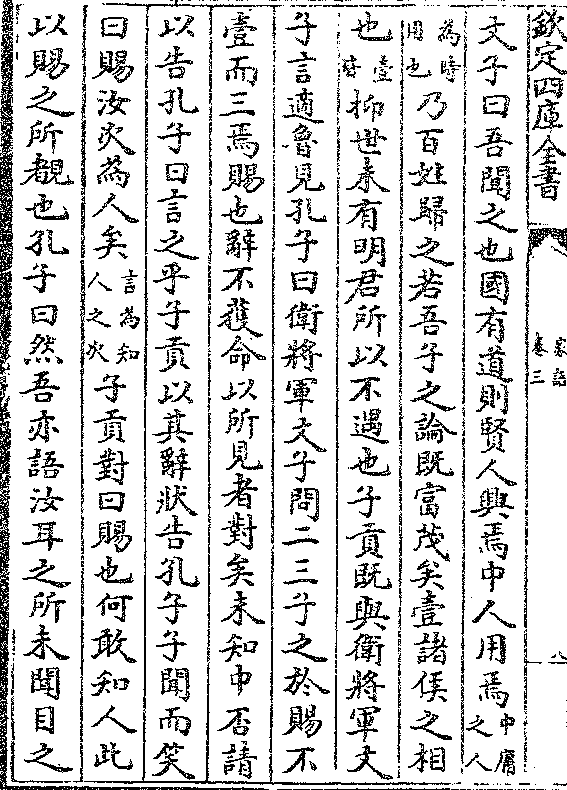 欽定四庫全書
家語
卷三
八
文子曰吾聞之也國有道則賢人興焉中人用焉中庸之人
為時用也乃百姓歸之若吾子之論既富茂矣壹諸侯之相
也壹皆抑世未有明君所以不遇也子貢既與衛將軍文
子言適魯見孔子曰衛將軍文子問二三子之於賜不
壹而三焉賜也辭不獲命以所見者對矣未知中否請
以告孔子曰言之乎子貢以其辭狀告孔子子聞而笑
曰賜汝次為人矣言為知人之次子貢對曰賜也何敢知人此
以賜之所覩也孔子曰然吾亦語汝耳之所未聞目之